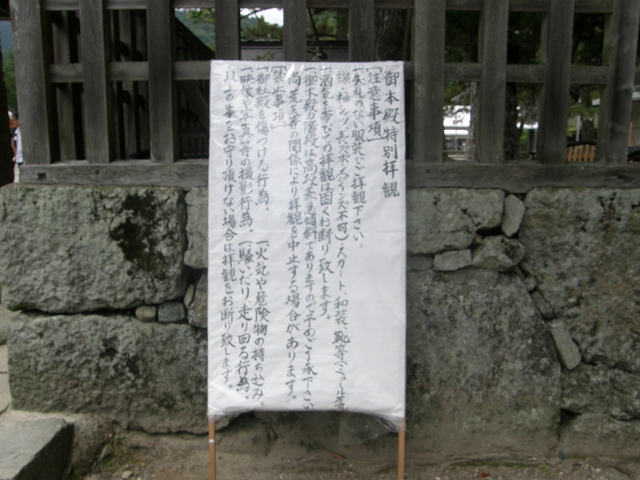 御本殿特別拝観
「注意事項」
一失礼のない服装にご拝観下さい。
襟、袖シャツ、長ズボン(ジーンズ不可)スカート、和装、靴等(ミュール不可)
一酒気を帯びての拝観は固くお断り致します。
一御本殿の階段は高さ急傾斜でありますので予めご了承下さい。
尚、
の関係により拝観を中止する場合があります。
「禁止事項」
「御社殿を傷つける行為。「火気や危険物の持ち込み。
「映像や写真等の撮影行為。「騒いだり走り回る行為。
以上の事をお守り頂けない場合は拝観をお断り致します。